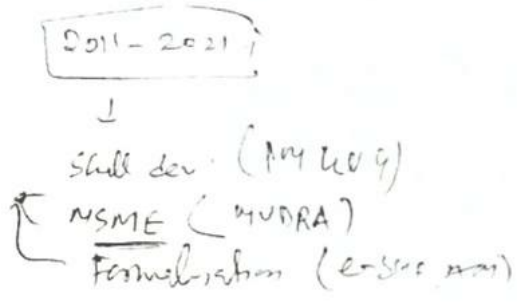 2011 - 2021
Skill dev. (PMKVY)
MSME (MUDRA)
Formalisation (e-